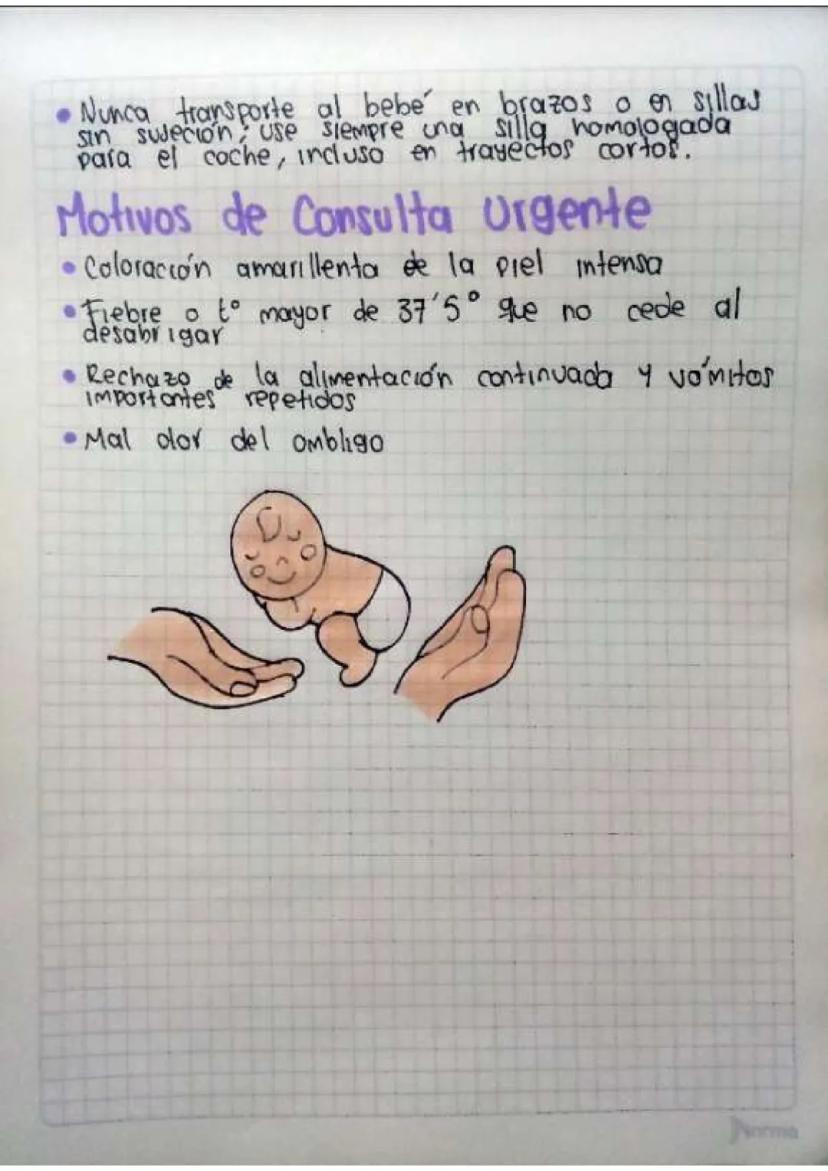 • Nunca transporte al bebé en brazos o en sillas
sin sujeción; use siempre una silla homologada
para el coche, incluso en trayectos cortos.
Motivos de Consulta Urgente
• Coloración amarillenta de la piel intensa
• Fiebre o tº mayor de 37'5º que no cede al
desabrigar
• Rechazo de la alimentación continuada y vómitos
importantes repetidos
• Mal olor del ombligo
Norma